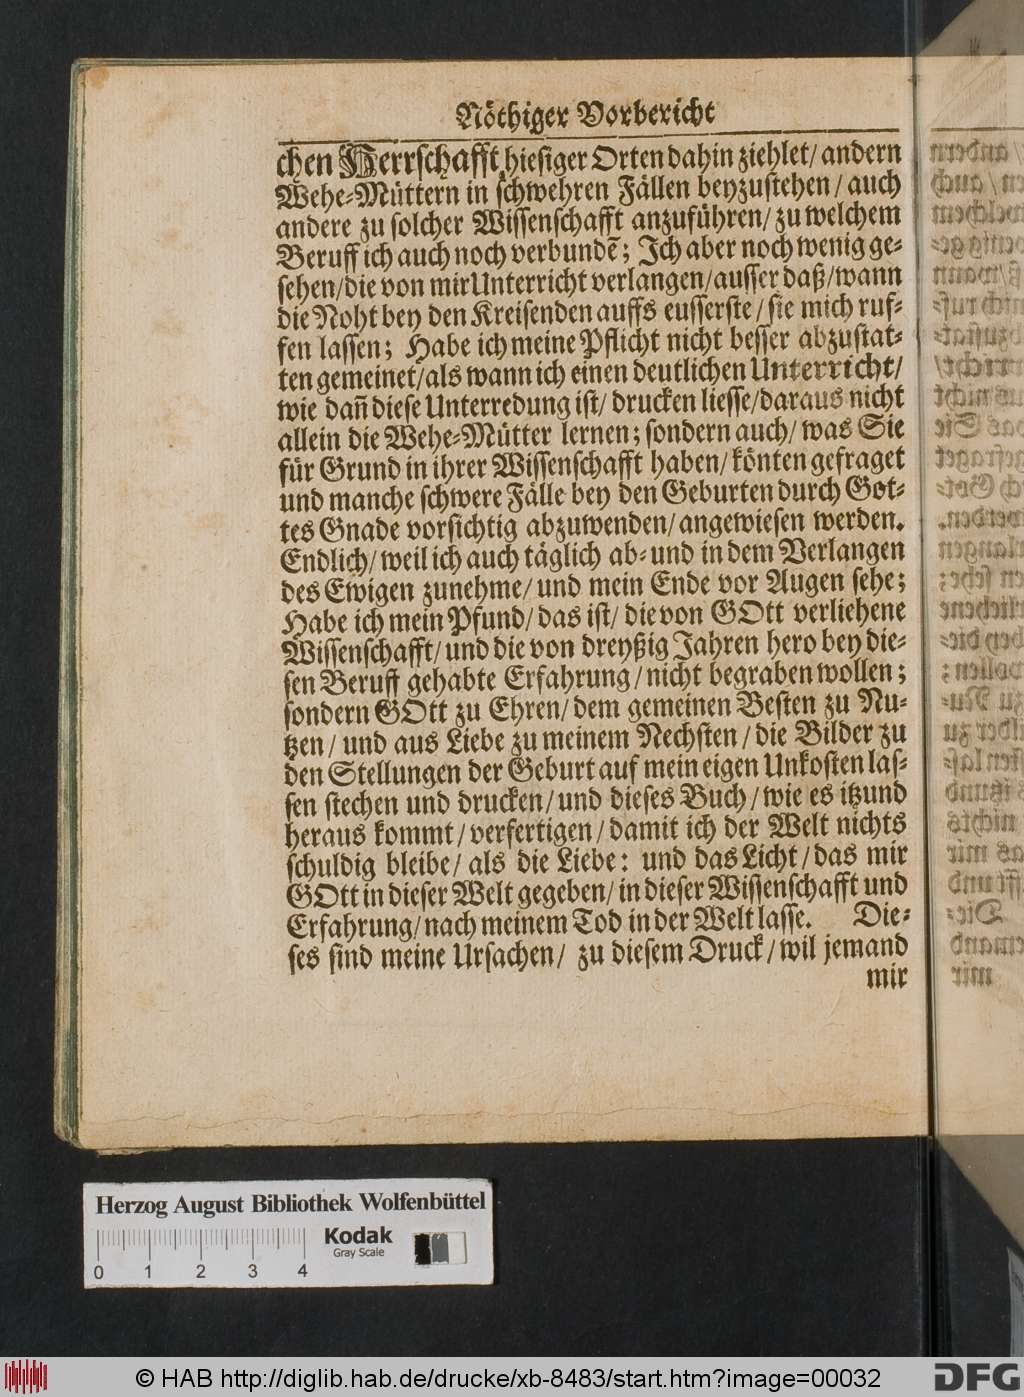 Nöthiger Vorbericht
chen Herrschafft hiesiger Orten dahin ziehlet/ andern
Wehe-Müttern in schwehren Fällen beyzustehen/ auch
andere zu solcher Wissenschafft anzuführen/ zu welchem
Beruff ich auch noch verbundē; Ich aber noch wenig ge-
sehen/ die von mir Unterricht verlangen/ ausser daß/ wann
die Noht bey den Kreisenden auffs eusserste/ sie mich ruf-
fen lassen; Habe ich meine Pflicht nicht besser abzustat-
ten gemeinet/ als wann ich einen deutlichen Unterricht/
wie dañ diese Unterredung ist/ drucken liesse/ daraus nicht
allein die Wehe-Mütter lernen; sondern auch/ was Sie
für Grund in ihrer Wissenschafft haben/ könten gefraget
und manche schwere Fälle bey den Geburten durch Got-
tes Gnade vorsichtig abzuwenden/ angewiesen werden.
Endlich/ weil ich auch täglich ab- und in dem Verlangen
des Ewigen zunehme/ und mein Ende vor Augen sehe;
Habe ich mein Pfund/ das ist/ die von GOtt verliehene
Wissenschafft/ und die von dreyßig Jahren hero bey die-
sen Beruff gehabte Erfahrung/ nicht begraben wollen;
sondern GOtt zu Ehren/ dem gemeinen Besten zu Nu-
tzen/ und aus Liebe zu meinem Nechsten/ die Bilder zu
den Stellungen der Geburt auf mein eigen Unkosten las-
sen stechen und drucken/ und dieses Buch/ wie es itzund
heraus kommt/ verfertigen/ damit ich der Welt nichts
schuldig bleibe/ als die Liebe: und das Licht/ das mir
GOtt in dieser Welt gegeben/ in dieser Wissenschafft und
Erfahrung/ nach meinem Tod in der Welt lasse. Die-
ses sind meine Ursachen/ zu diesem Druck/ wil jemand
mir
Herzog August Bibliothek Wolfenbüttel
Kodak
Gray Scale
0 1 2 3 4
© HAB http://diglib.hab.de/drucke/xb-8483/start.htm?image=00032
DFG